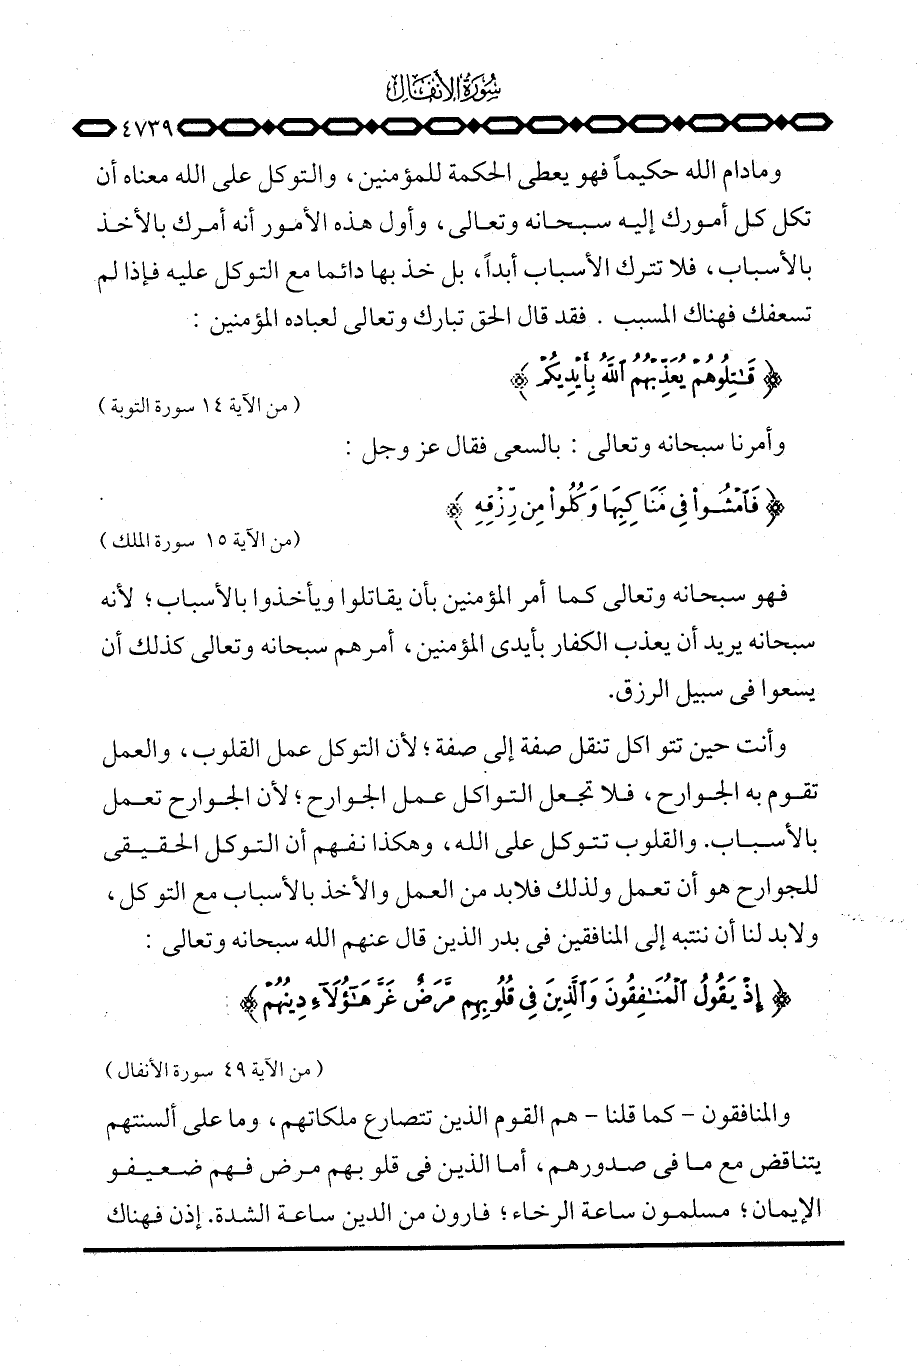 سُورَةُ الأَنفَالِ
٤٧٣٩
ومادام الله حكيماً فهو يعطى الحكمة للمؤمنين، والتوكل على الله معناه أن
تكل كل أمورك إليه سبحانه وتعالى، وأول هذه الأمور أنه أمرك بالأخذ
بالأسباب، فلا تترك الأسباب أبداً، بل خذ بها دائما مع التوكل عليه فإذا لم
تسعفك فهناك المسبب . فقد قال الحق تبارك وتعالى لعباده المؤمنين :
﴿ قَـٰتِلُوهُمْ يُعَذِّبْهُمُ ٱللَّهُ بِأَيْدِيكُمْ ﴾
( من الآية ١٤ سورة التوبة )
وأمرنا سبحانه وتعالى : بالسعى فقال عز وجل :
﴿ فَٱمْشُوا۟ فِى مَنَاكِبِهَا وَكُلُوا۟ مِن رِّزْقِهِ ﴾
(من الآية ١٥ سورة الملك )
فهو سبحانه وتعالى كما أمر المؤمنين بأن يقاتلوا ويأخذوا بالأسباب؛ لأنه
سبحانه يريد أن يعذب الكفار بأيدى المؤمنين، أمرهم سبحانه وتعالى كذلك أن
يسعوا فى سبيل الرزق.
وأنت حين تتواكل تنقل صفة إلى صفة؛ لأن التوكل عمل القلوب، والعمل
تقوم به الجوارح، فلا تجعل التواكل عمل الجوارح؛ لأن الجوارح تعمل
بالأسباب. والقلوب تتوكل على الله، وهكذا نفهم أن التوكل الحقيقى
للجوارح هو أن تعمل ولذلك فلابد من العمل والأخذ بالأسباب مع التوكل،
ولابد لنا أن ننتبه إلى المنافقين فى بدر الذين قال عنهم الله سبحانه وتعالى :
﴿ إِذْ يَقُولُ ٱلْمُنَـٰفِقُونَ وَٱلَّذِينَ فِى قُلُوبِهِم مَّرَضٌ غَرَّ هَـٰٓؤُلَآءِ دِينُهُمْ ﴾
( من الآية ٤٩ سورة الأنفال )
والمنافقون - كما قلنا - هم القوم الذين تتصارع ملكاتهم، وما على ألسنتهم
يتناقض مع ما فى صدورهم، أما الذين فى قلوبهم مرض فهم ضعيفو
الإيمان؛ مسلمون ساعة الرخاء؛ فارون من الدين ساعة الشدة. إذن فهناك